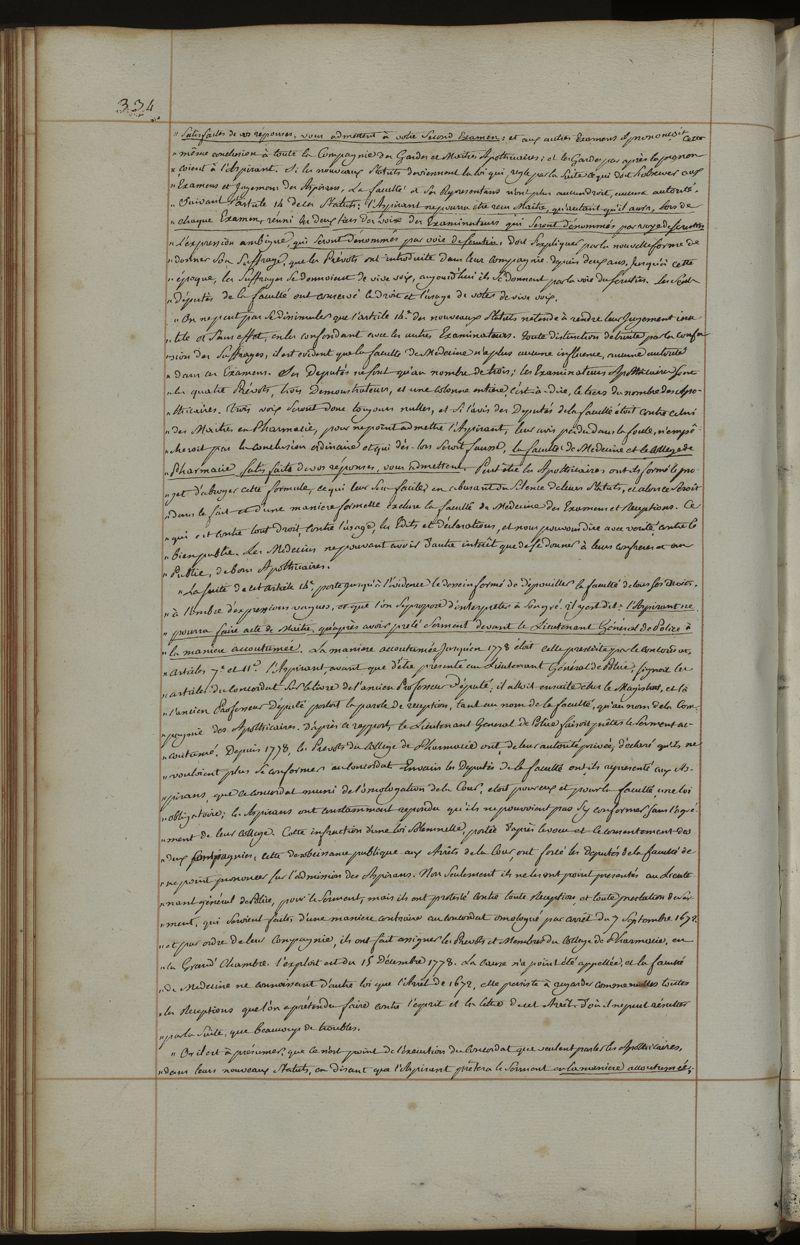 334
" Satisfaites de vos reponses, vous admettent à votre Second Examen; et aux autres Examens Ils prononcoit cette
" même conclusion à toute la Compagnie des Gardes et Maitres Apothicaires; et les Gardes peu après la prononcoient à l'Aspirant. Si les nouveaux Statuts deviennent la loi qui regle par la Suite ce qui doit s'observer aux
" Examens et Jugemens des Aspirans, La faculté et Ses Representans n'ont plus aucun droit, aucune autorité.
" Suivant l'article 14 de ces Statuts: l'Aspirant ne pourra etre reçu Maitre, qu'autant qu'il aura, lors de
" chaque Examen, réuni les deux tiers des voix des Examinateurs qui Seront dénommés par voye de Scrutin
" L'expression ambigue, qui Seront dénommés par voie de Scrutin, doit S'expliquer par la nouvelle forme de
" donner Son Suffrage, que les Prévots ont introduite dans leur compagnie depuis deux ans, Jusqu'à cette
" époque, les Suffrages Se donnoient de vive voix, aujourd'hui ils Se donnent par la voie du Scrutin. Les Seuls
" Députés de la faculté ont conservé le droit et l'usage de voter de vive voix.
" On ne peut pas Se dissimuler que l'article 14e. des nouveaux Statuts ne tende à rendre leur Jugement inu
" tile et Sans effet, en les confondant avec les autres Examinateurs. Toute distinction détruite par la confu
" sion des Suffrages, il est évident que la faculté de Medecine n'a plus aucune influence, aucune autorité
" dans ces Examens. Ses Deputés ne Sont qu'au nombre de trois; les Examinateurs Apothicaires Sont
" les quatre Prévots, trois Demonstrateurs, et une colonne entiere, c'est-à-dire, le tiers du nombre des Apo-
" thicaires. Trois voix Seront donc toujours nulles, et Si l'avis des Deputés de la faculté étoit contre celui
" des Maitres en Pharmacie, pour ne point admettre l'Aspirant, leur avis perdu dans la foule, n'empê-
" cheroit pas la conclusion ordinaire et qui dès-lors Seroit fausse, la faculté de Medecine et le College de
" Pharmacie Satisfaite de vos réponses, vous admettent. Peut-être les Apothicaires ont-ils formé le pro-
" jet d'abroger cette formule, ce qui leur Sera facile, en abusant du Silence de leurs Statuts, et alors ce Seroit
" dans le fait et d'une maniere formelle exclure la faculté de Medecine des Examens et Receptions. Ce
" qui est contre tout droit, contre l'usage, les Edits et déclarations, et nous pouvons dire avec verité, contre le
" bien public. Les Medecins ne pouvant avoir d'autre intérêt que de Se donner à leurs confreres et au
" Public, de bons Apothicaires.
" La Suite de cet article 14e. porte jusqu'à l'evidence le dessein formé de dépouiller la faculté de tous Ses droits,
" à l'ombre d'expressions vagues, et que l'on Se propose d'interpreter à Son gré. il y est dit: l'Aspirant ne
" pourra faire acte de Maitre, qu'après avoir prêté Serment devant le Lieutenant Général de Police à
" la maniere accoutumée. La maniere accoutumée Jusqu'en 1778 étoit celle prescrite par le concordat,
" articles 7e. et 11e. l'Aspirant, avant que d'être présenté au Lieutenant Général de Police, Signoit les
" articles du concordat Sur le livre de l'ancien Professeur Député; il alloit ensuite chez le Magistrat, et là
" l'ancien Professeur Député portoit la parole de reception, tant au nom de la faculté, qu'au nom de la Com-
" pagnie des Apothicaires. D'après ce rapport, le Lieutenant General de Police faisoit prêter le Serment ac-
" coutumé. Depuis 1778, les Prevots du College de Pharmacie ont, de leur autorité privée, déclaré qu'ils ne
" vouloient plus Se conformer au concordat. Envain les Députés de la faculté ont-ils representé aux As-
" pirans, que ce concordat muni de l'omologation de la Cour, etoit pour eux et pour la faculté, une loi
" obligatoire; les Aspirans ont constamment repondu qu'ils ne pouvoient pas S'y conformer Sans l'agré
" ment de leur college. Cette infraction d'une loi Solemnelle, portée d'après le voeu et le consentement des
" deux Compagnies; cette desobeissance publique aux Arrêts de la Cour, ont forcé les députés de la faculté de
" ne point prononcer Sur l'admission des Aspirans. Non Seulement ils ne les ont point presentés au Lieute
" nant général de Police, pour le Serment, mais ils ont protesté contre toute Reception et toute prestation de Ser
" ment, qui Seroient faites d'une maniere contraire au concordat omologué par arrêt du 7 Septembre 1672.
" et par ordre de leur Compagnie, ils ont fait assigner les Prevots et Membres du College de Pharmacie, en
" la Grand' Chambre. l'exploit est du 15 Décembre 1778. La cause n'a point été appellée, et la faculté
" de Medecine ne connaissant d'autre loi que l'Arrêt de 1672, elle persiste à regarder comme nulles toutes
" les Receptions que l'on a prétendu faire contre l'esprit et la lettre de cet Arrêt. D'où il ne peut résulter
" par la Suite, que beaucoup de troubles.
" Or il est à présumer, que ce n'est point de l'execution du Concordat que veulent parler les Apothicaires,
" dans leurs nouveaux Statuts, en disant que l'Aspirant prêtera le Serment en la maniere accoutumée;